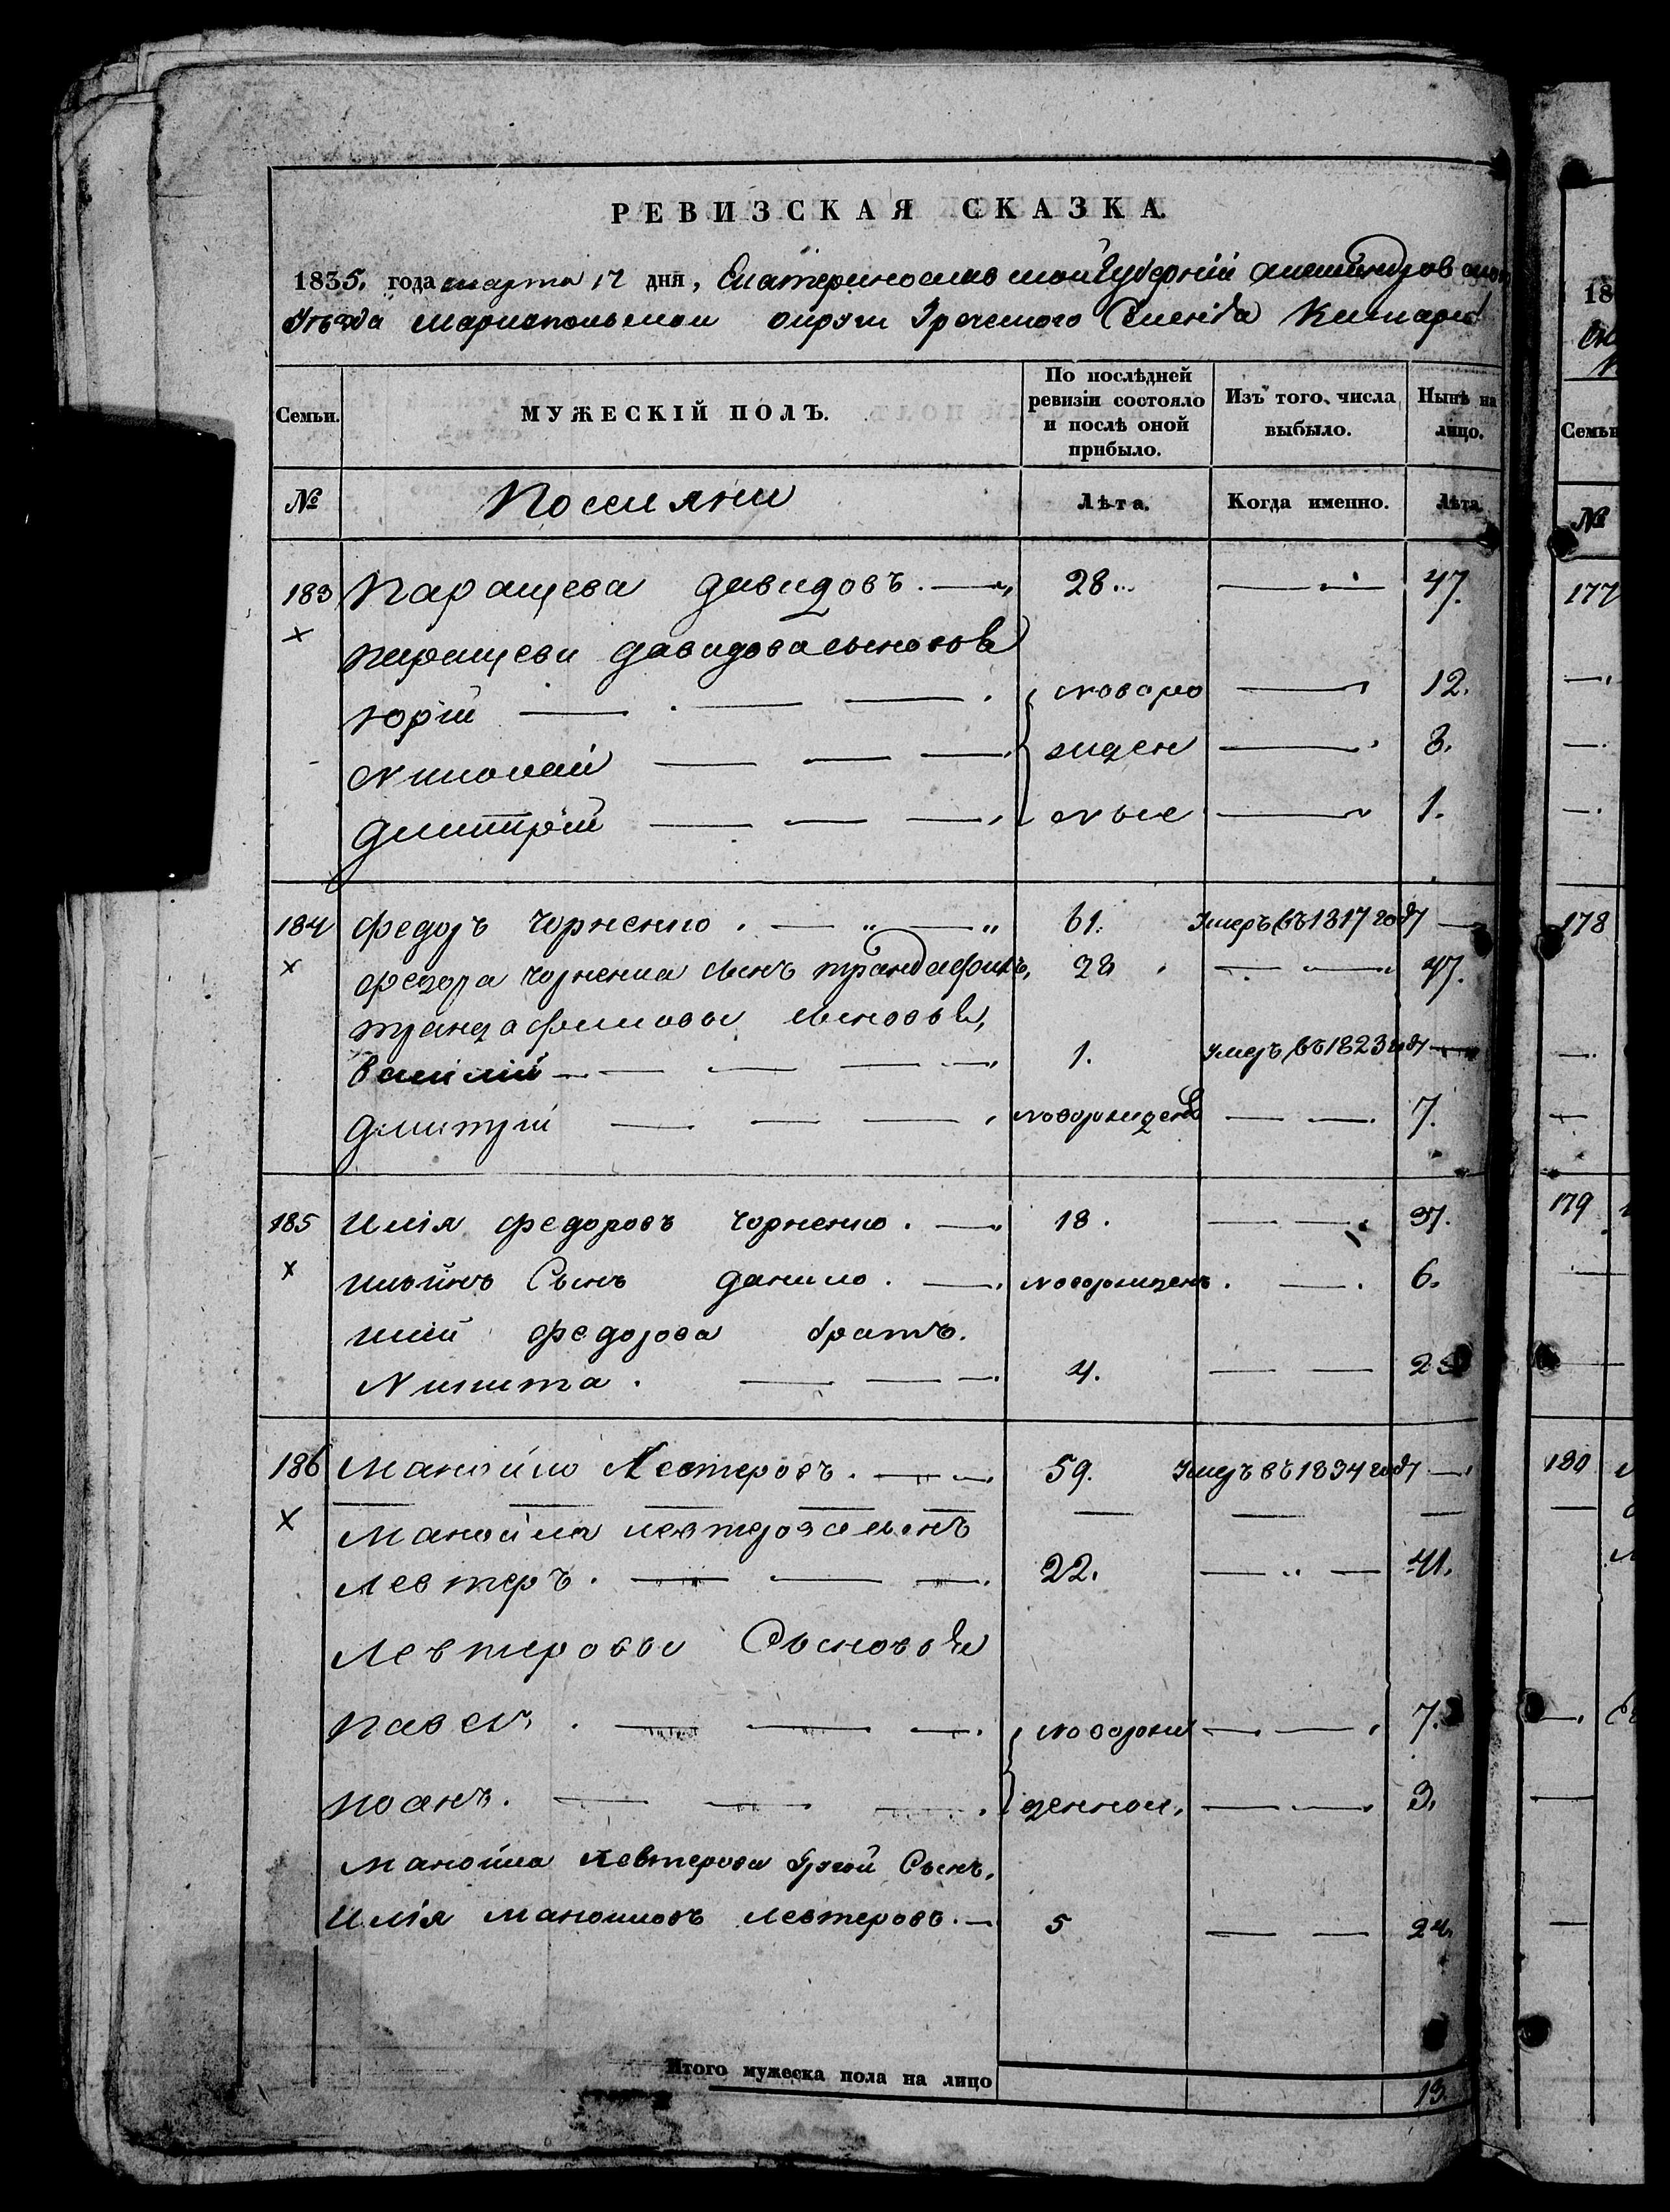 РЕВИЗСКАЯ СКАЗКА.
1835. года марта 12 дня, Екатеринославской Губерніи Александровскаго
Уезда Мариопольскои округи Греческого Селенія
Семьи. МУЖЕСКІЙ ПОЛЪ. По послѣдней ревизіи состояло и послѣ оной прибыло. Изъ того числа выбыло. Нынѣ на лицо.
№ Поселяни Лѣта. Когда именно. Лѣта.
183 Паращева Давидовъ. 28. 47.
Паращеви Давидова сыновья
Юрій новоро 12.
Николай жден 8.
Дмитрій ные 1.
184 Федоръ Чорненко. 61. Умеръ въ 1817 году
Федора Чорненка сынъ Трандафилъ, 28 47.
Трандафиловы сыновья,
Василій 1. Умеръ въ 1823 году
Дмитрий новорожденъ 7.
185 Илія Федоровъ Чорненко. 18. 37.
Ильинъ Сынъ Данило. новорожденъ. 6.
Иліи Федорова братъ.
Никита. 4. 23
186 Манойло Левтеровъ. 59. Умеръ въ 1834 году
Манойла Левтерова сынъ
Левтеръ. 22. 41.
Левтеровы Сыновья
Павел. новорож 7.
Иоанъ. денной, 3.
Манойла Левтерова другой Сынъ.
Илія Манойловъ Левтеровъ. 5 24.
Итого мужеска пола на лицо 13
18
Семьи
№
177
178
179
180